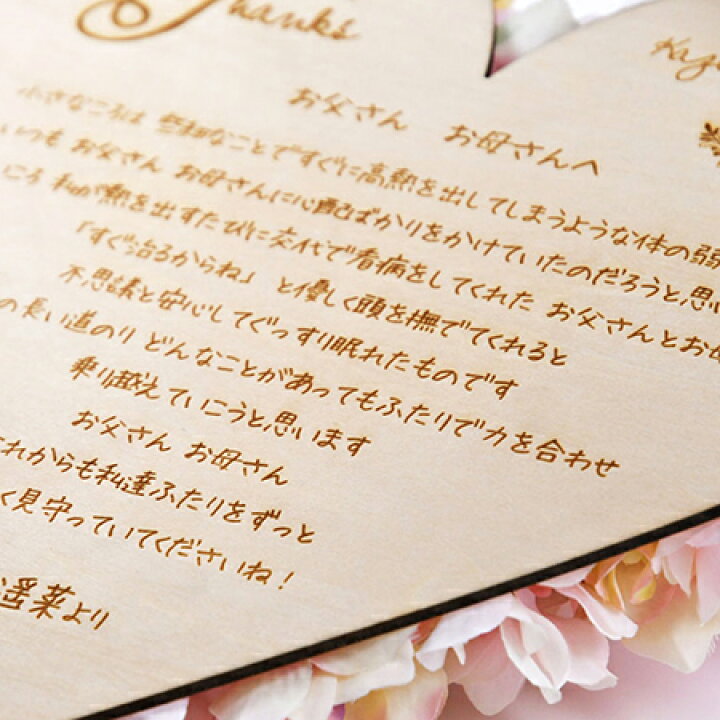 Thanks
お父さん お母さんへ
小さなころは 些細なことですぐに高熱を出してしまうような体の弱
いつも お父さん お母さんに心配ばかりをかけていたのだろうと思い
ころ 私が熱を出すたびに交代で看病をしてくれた お父さんとお母
「すぐ治るからね」 と優しく頭を撫でてくれると
不思議と安心してぐっすり眠れたものです
の長い道のり どんなことがあってもふたりで力を合わせ
乗り越えていこうと思います
お父さん お母さん
これからも私達ふたりをずっと
く見守っていてくださいね！
遥菜より